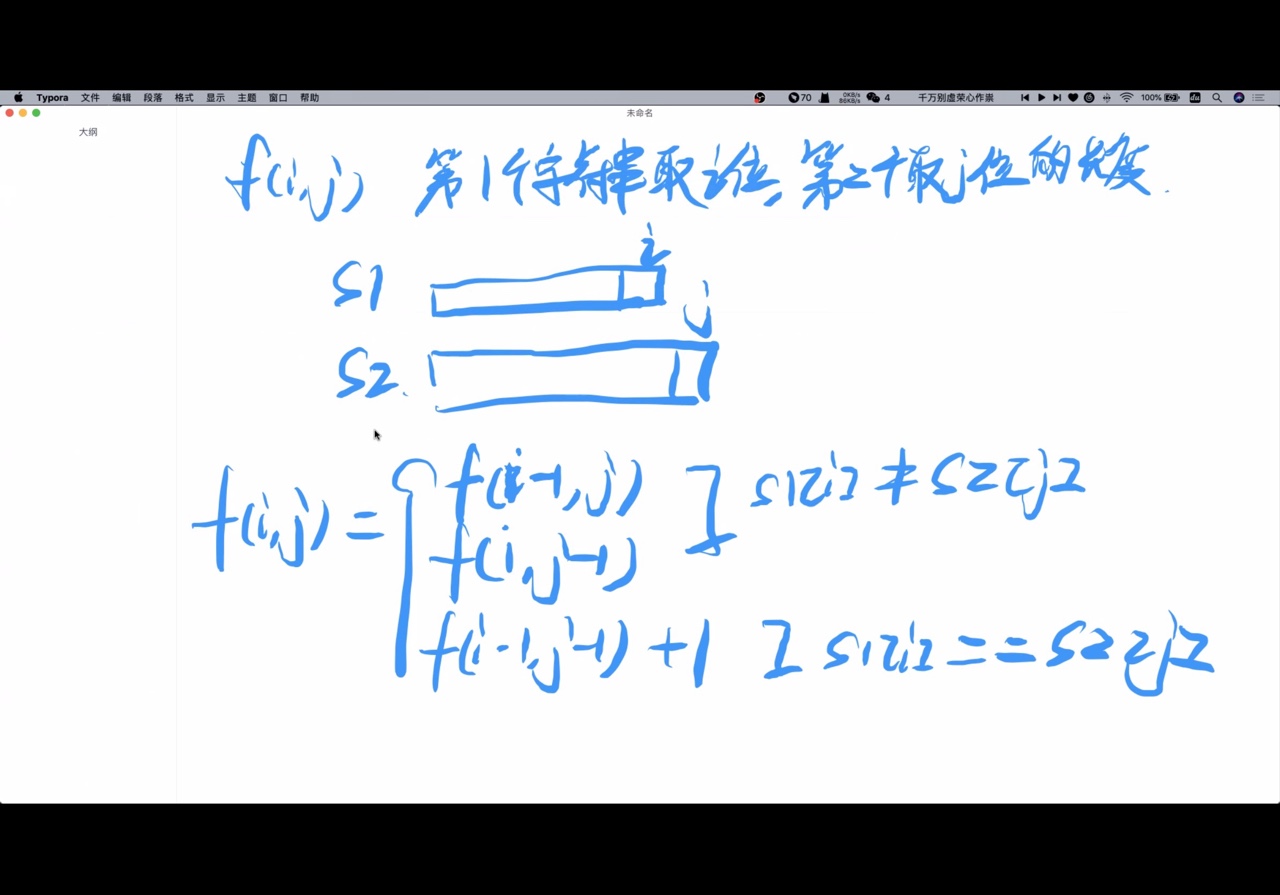 Typora 文件 编辑 段落 格式 显示 主题 窗口 帮助 70 0KB/s 86KB/s 4 千万别虚荣心作祟 100%
未命名
大纲
f(i,j) 第1个字符串取i位,第二个取j位的长度.
i
S1
j
S2.
f(i-1,j)
f(i,j) = f(i,j-1) ] S1[i] ≠ S2[j]
f(i-1,j-1) +1 ] S1[i] == S2[j]